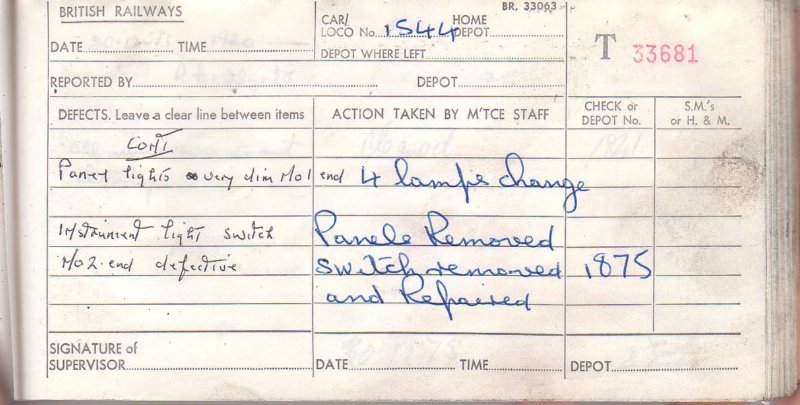 BRITISH RAILWAYS
BR. 33063
CAR/
LOCO No. 1544 HOME DEPOT
DATE TIME
DEPOT WHERE LEFT
T 33681
REPORTED BY DEPOT
DEFECTS. Leave a clear line between items
ACTION TAKEN BY M'TCE STAFF
CHECK or DEPOT No.
S.M.'s or H. & M.
CONT
Panel lights very dim No1 end 4 lamps change
Instrument light switch Panels Removed
No2 end defective switch removed 1875
and Repaired
SIGNATURE of
SUPERVISOR DATE TIME DEPOT